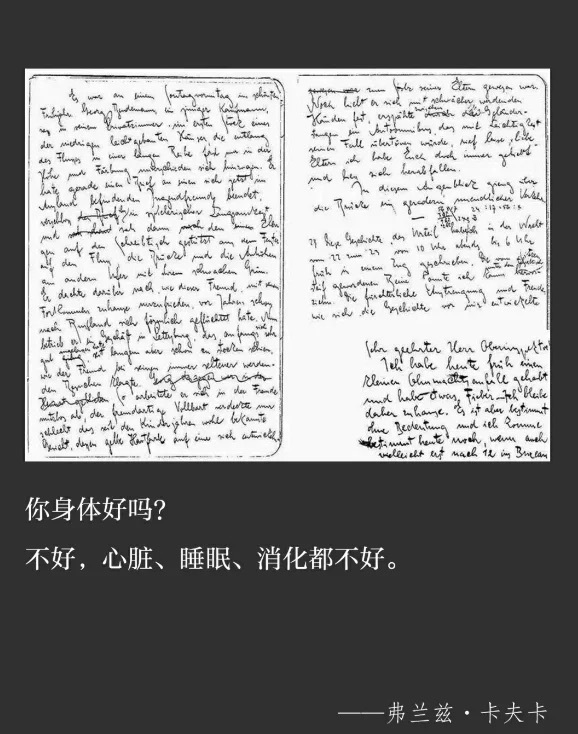 Es war an einem Sonntagvormittag im schönsten
Frühjahr. Georg Bendemann, ein junger Kaufmann,
sass in seinem Privatzimmer im ersten Stock eines
der niedrigen leichtgebauten Häuser, die entlang
des Flusses in einer langen Reihe fast nur in der
Höhe und Färbung unterschieden sich hinzogen. Er
hatte gerade einen Brief an einen sich jetzt im
Ausland befindenden Jugendfreund beendet,
verschloss in spielerischer Langsamkeit
und sah dann den Ellbo
gen auf den Schreibtisch gestützt aus dem Fenster
auf den Fluss, die Brücke und die Anhöhen
am andern Ufer mit ihrem schwachen Grün.
Er dachte darüber nach, wie dieser Freund, mit seinem
Fortkommen zuhause unzufrieden, vor Jahren schon
nach Russland sich förmlich geflüchtet hatte. Nun
betrieb er ein Geschäft in Petersburg, das anfangs sich sehr
gut seit langem aber schon zu stocken schien,
wie der Freund bei seinen immer seltener werden-
den Besuchen klagte.
So arbeitete er sich in der Fremde
nutzlos ab, der fremdartige Vollbart verdeckte nur
schlecht das seit den Kinderjahren wohl bekannte
Gesicht, dessen gelbe Hautfarbe auf eine sich entwickelnde
zum Stolz seiner Eltern gewesen war.
Noch hielt er sich mit schwächer werdenden
Händen fest, erspähte zwischen den Geländer-
stangen ein Autoomnibus, das mit Leichtigkeit
seinen Fall übertönen würde, rief leise: Liebe
Eltern ich habe Euch doch immer geliebt
und liess sich herabfallen.
In diesem Augenblick gieng über
die Brücke ein geradezu unendlicher Verkehr
23 Diese Geschichte das Urteil habe ich in der Nacht
vom 22 zum 23 von 10 Uhr abends bis 6 Uhr
früh in einem Zug geschrieben. Die vom Sitzen
steif gewordenen Beine konnte ich kaum
ziehn. Die fürchterliche Anstrengung und Freude
wie sich die Geschichte vor mir entwickelte
Sehr geehrter Herr Oberinspektor!
Ich habe heute früh einen
kleinen Ohnmachtsanfall gehabt
und habe etwas Fieber. Ich bleibe
daher zuhause. Es ist aber bestimmt
ohne Bedeutung und ich komme
bestimmt heute noch, wenn auch
vielleicht erst nach 12 ins Bureau
你身体好吗？
不好，心脏、睡眠、消化都不好。
——弗兰兹·卡夫卡